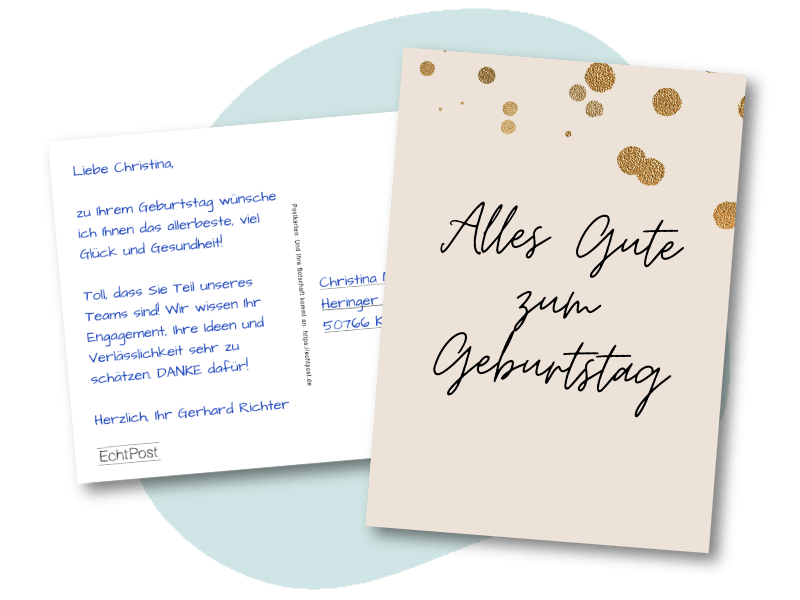 Liebe Christina,
zu Ihrem Geburtstag wünsche
ich Ihnen das allerbeste, viel
Glück und Gesundheit!
Toll, dass Sie Teil unseres
Teams sind! Wir wissen Ihr
Engagement, Ihre Ideen und
Verlässlichkeit sehr zu
schätzen. DANKE dafür!
Herzlich, Ihr Gerhard Richter
EchtPost
Postkarten: Und Ihre Botschaft kommt an. https://echtpost.de
Christina
Heringer
50766 K
Alles Gute
zum
Geburtstag